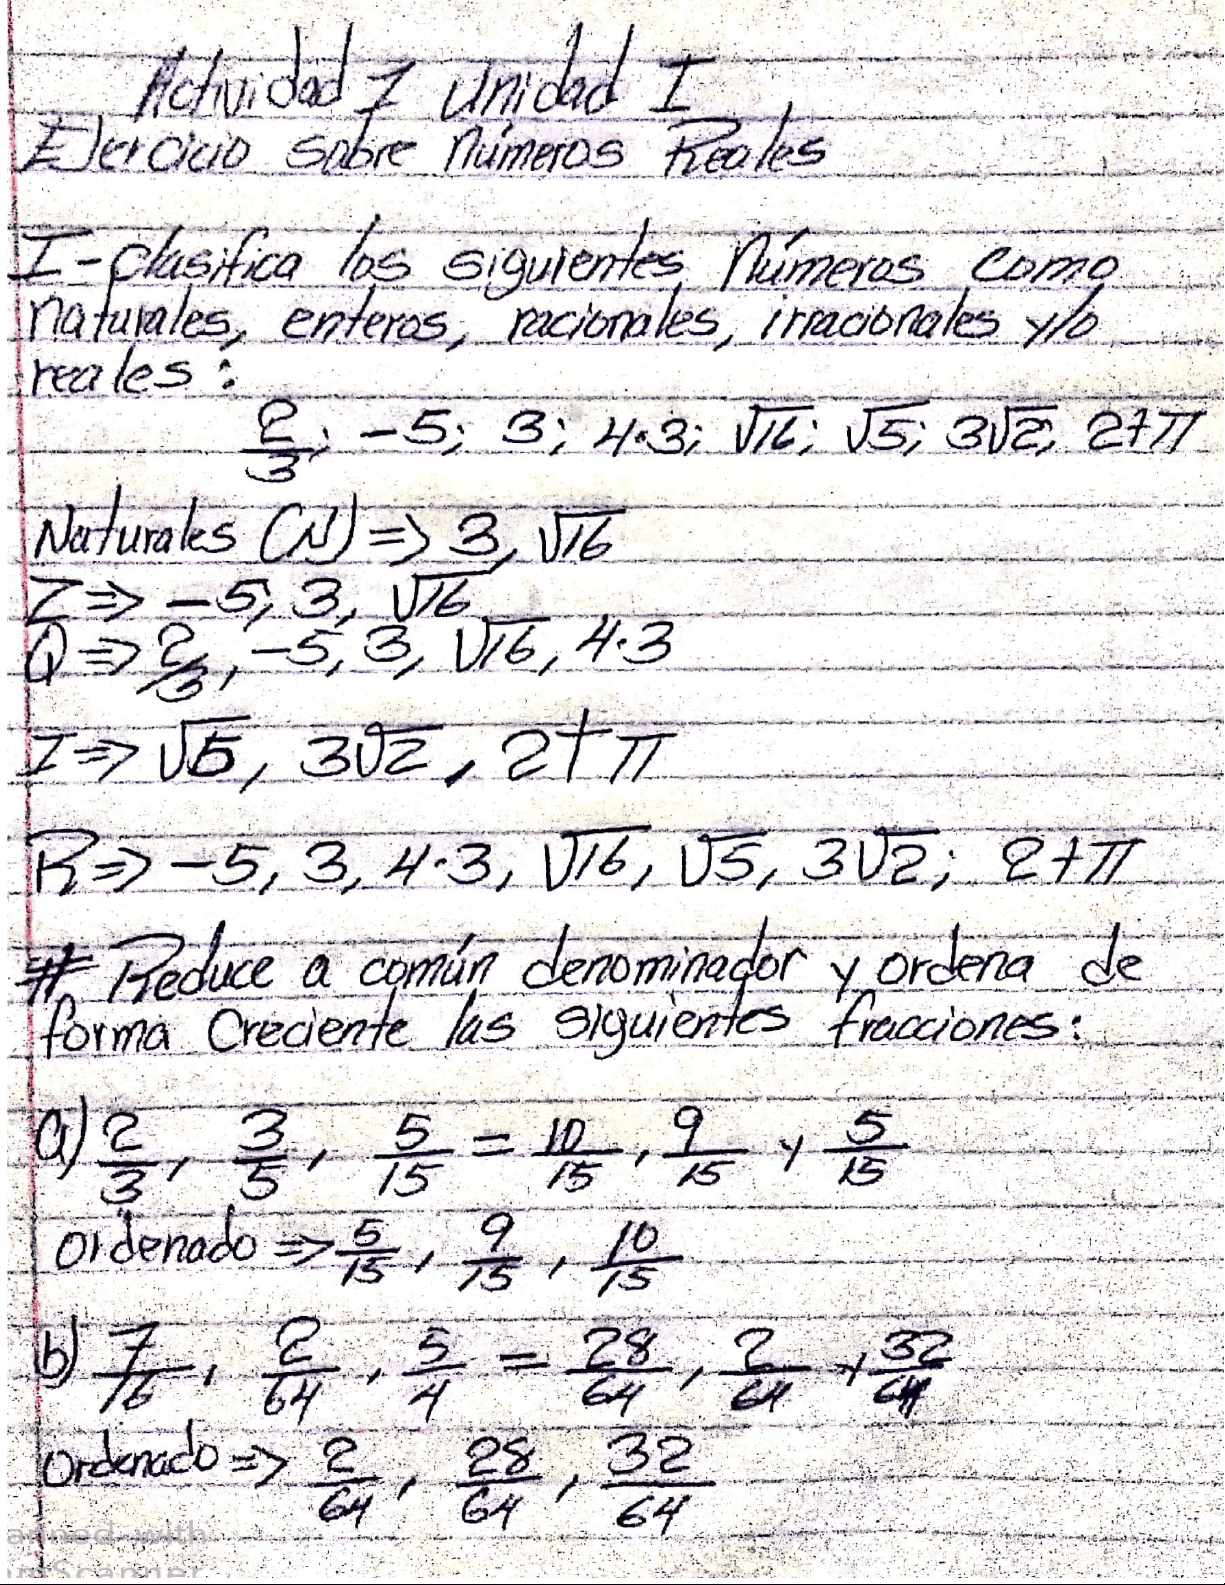 Actividad I Unidad I
Ejercicio sobre Números Reales
I-clasifica los siguientes Números como
naturales, enteros, racionales, irracionales y/o
reales:
2/3; -5; 3; 4.3; √16; √5; 3√2; 2+π
Naturales (N) => 3, √16
Z => -5, 3, √16
Q => 2/3, -5, 3, √16, 4.3
I => √5, 3√2, 2+π
R => -5, 3, 4.3, √16, √5, 3√2; 2+π
# Reduce a común denominador y ordena de
forma Creciente las siguientes fracciones:
a) 2/3, 3/5, 5/15 = 10/15, 9/15 y 5/15
ordenado => 5/15, 9/15, 10/15
b) 7/16, 2/64, 5/4 = 28/64, 2/64 y 32/64
Ordenado => 2/64, 28/64, 32/64
anned with
mScanner